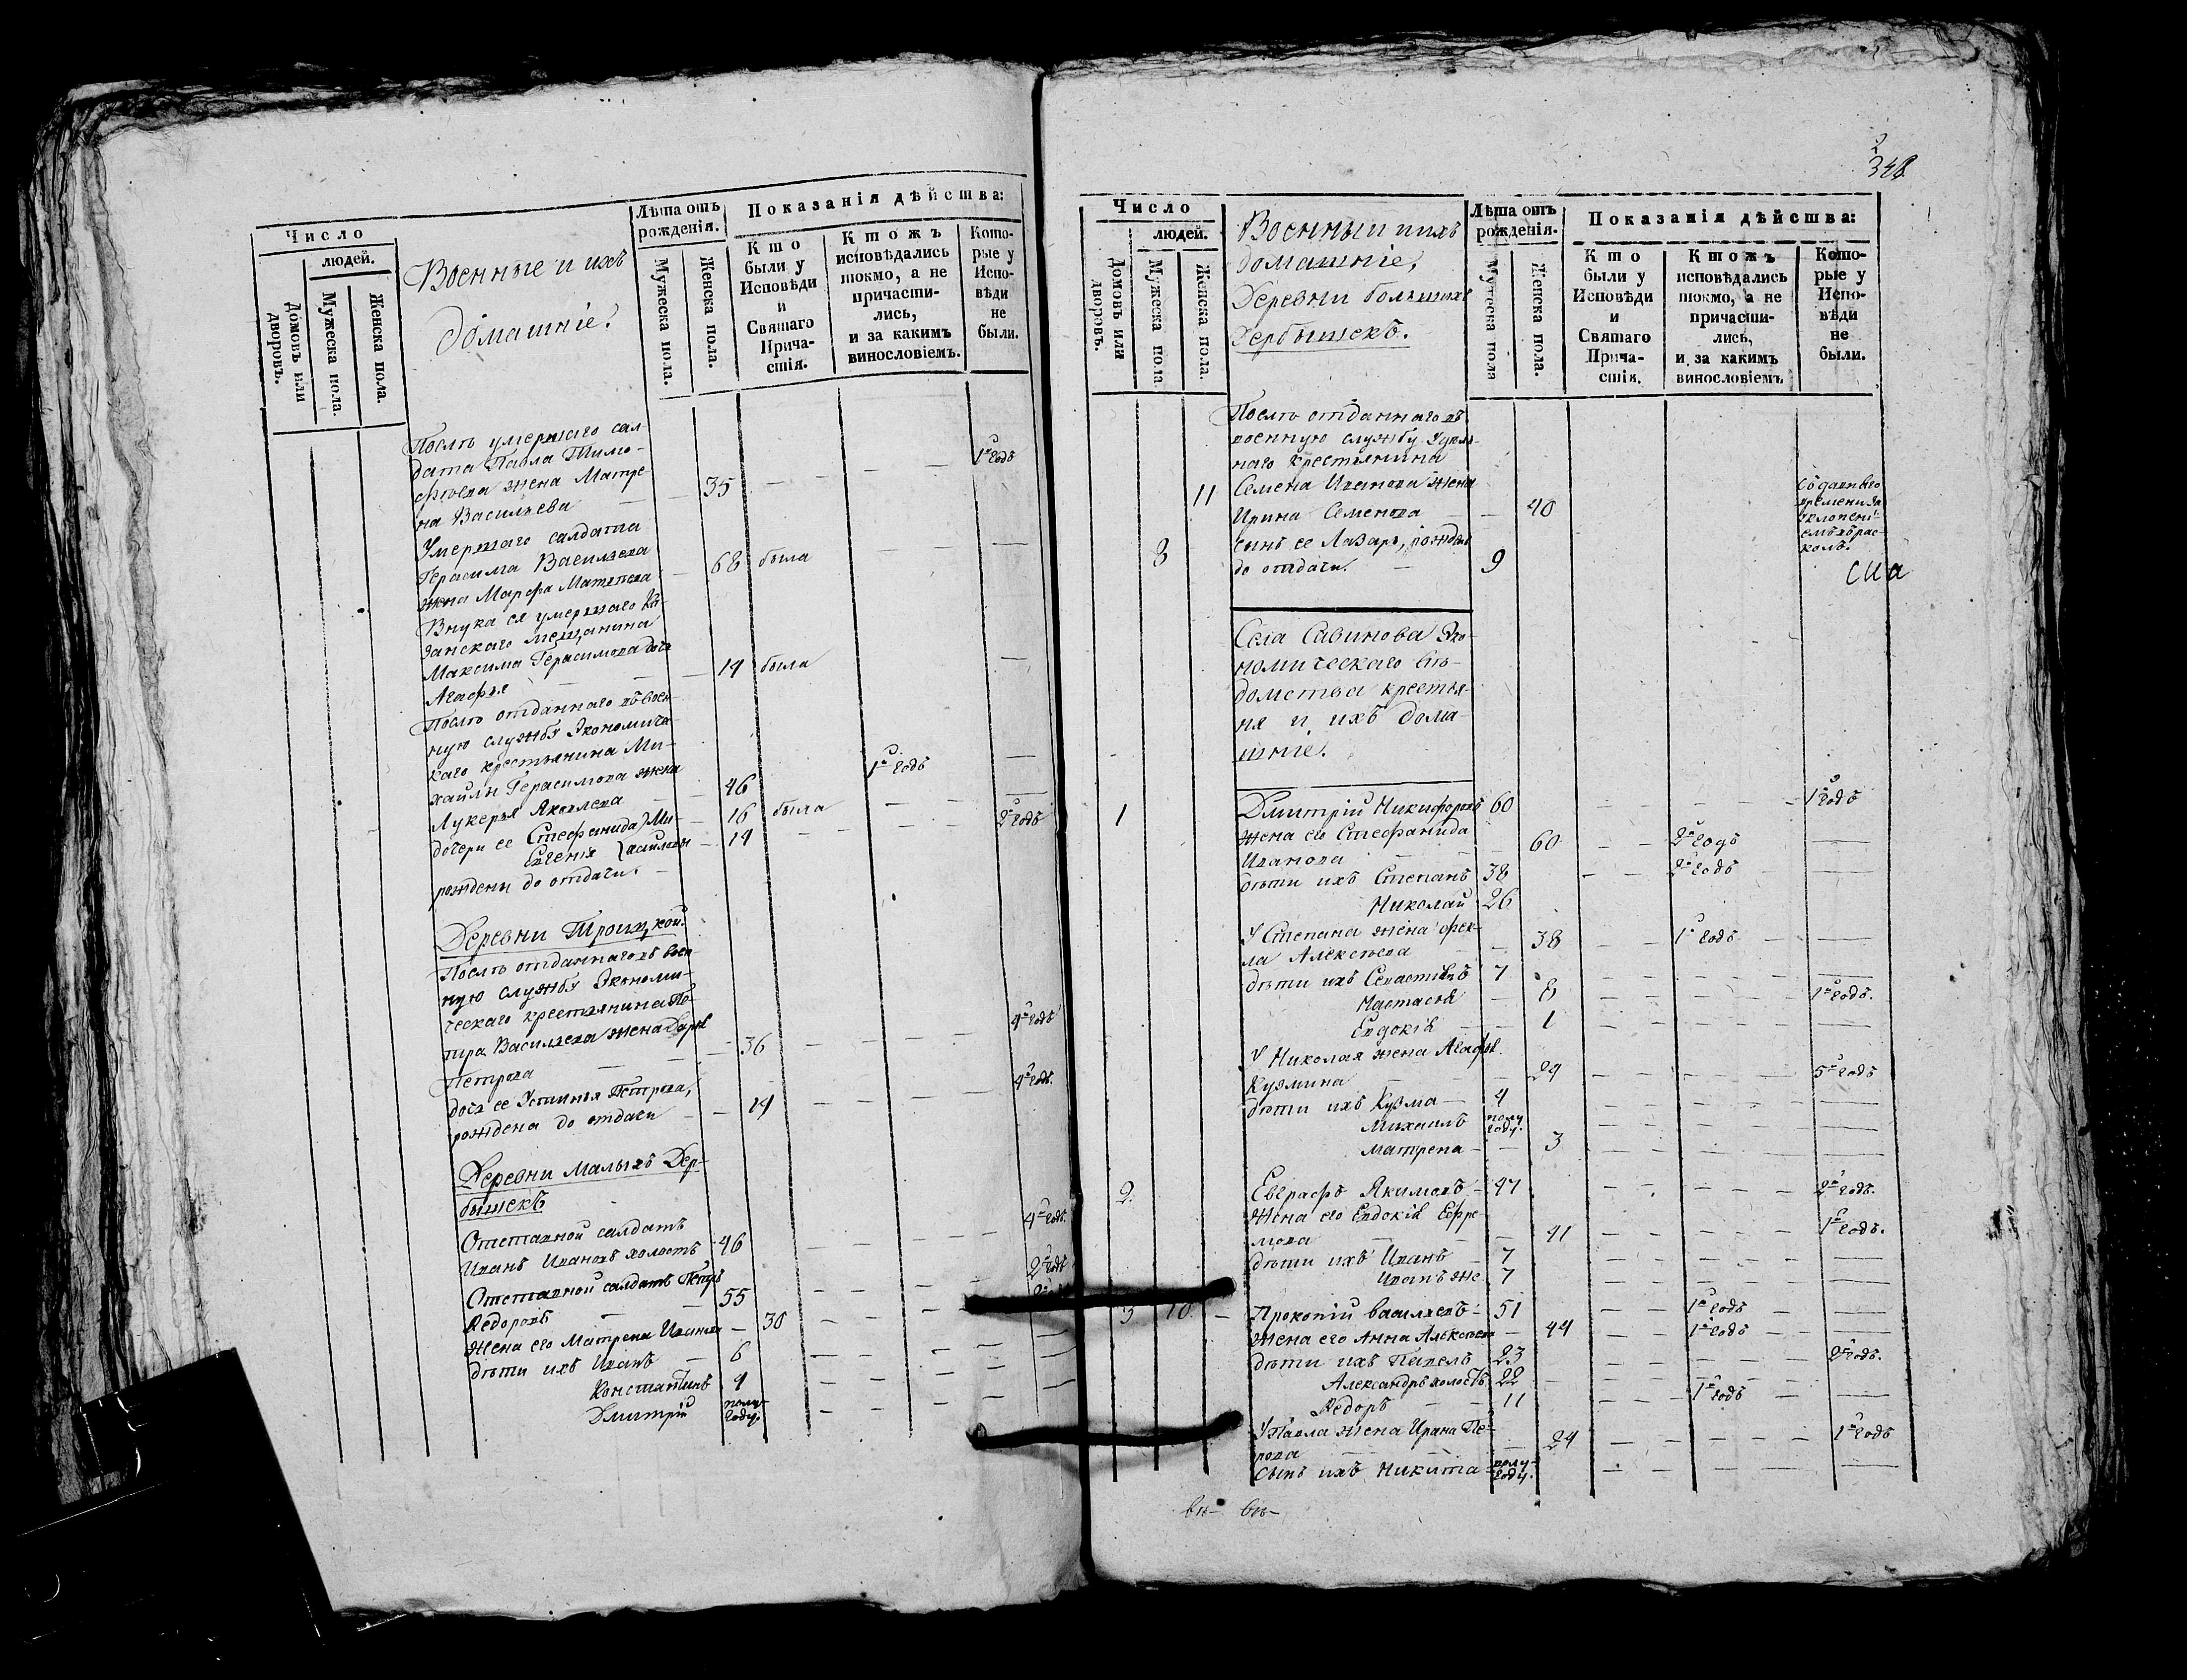 Число
людей.
Домовъ или дворовъ.
Мужеска пола.
Женска пола.
Военные и ихъ
домашніе.
Лѣта отъ
рожденія.
Мужеска пола.
Женска пола.
Показанія дѣйства:
Кто
были у
Исповѣди
и
Святаго
Прича-
стія.
Ктожъ
исповѣдались
токмо, а не
причасти-
лись,
и за какимъ
винословіемъ.
Кото-
рые у
Испо-
вѣди
не
были.
Послѣ умершаго сал-
дата Павла Тимо-
фѣева жена Матре-
на Васильева — — 35 — — — 1й годъ
Умершаго салдата
Герасима Васильева
жена Марфа Матвѣева — 68 была — — —
Внука ея умершаго Ка-
занскаго мещанина
Максима Герасимова дочь
Агафья — — — 14 была —
Послѣ отданнаго въ воен-
ную службу Экономиче-
каго крестьянина Ми-
хайлы Герасимова жена
Лукерья Яковлева — — 46 1й годъ —
дочери ее Стефанида } Ми- — 16 была — — —
Евгенія } хайловы — 14 — — — 2й годъ
рождены до отдачи. —
Деревни Троицкой.
Послѣ отданнаго въ воен-
ную службу Экономи-
ческаго крестьянина Пе-
тра Васильева жена Дарья
Петрова — — 36 — — — — 4й годъ
дочь ее Устинья Петрова,
рождена до отдачи — — 14 — — — — 4й годъ.
Деревни Малыхъ Дер-
бышекъ
Отставной салдатъ
Иванъ Ивановъ холостъ 46 — — — — 4й годъ.
Отставной салдатъ Петръ
Ѳедоровъ — — 55 — — — — 2й годъ
жена его Матрена Иванова — 30 — — —
дѣти ихъ Иванъ — 6 — — — — —
Константинъ 4 — — — — —
Дмитрій полу-
году. — — — —
348
Число
людей.
Домовъ или дворовъ.
Мужеска пола
Женска пола.
Военныи ихъ
домашніе,
Деревни большихъ
Дербышекъ.
Лѣта отъ
рожденія.
Мужеска пола
Женска пола.
Показанія дѣйства:
Кто
были у
Исповѣди
и
Святаго
Прича-
стія.
Ктожъ
исповѣдались
токмо, а не
причасти-
лись,
и за какимъ
винословіемъ
Кото-
рые у
Испо-
вѣди
не
были.
Послѣ отданнаго въ
военную службу Удѣль-
наго крестьянина
Семена Иванова жена
11 Ирина Семенова — — 40
съ давняго
времени за
уклонені-
емъ въ рас-
колъ.
8 сынъ ее Лазарь, рожденъ
до отдачи. — 9
Села Савинова Эко-
номическаго вѣ-
домства крестья-
ня и ихъ дома-
шніе.
1 Дмитрій Никифоровъ 60 — — — — — 1й годъ
жена его Стефанида
Иванова — — — 60 — — 2й годъ —
дѣти ихъ Степанъ 38 — — 2й годъ —
Николай 26
У Степана жена Фек-
ла Алексѣева — — 38 — — 1й годъ — —
дѣти ихъ Севастьянъ 7 — — — — — —
Настасья — 8 — — — — — 1й годъ.
Евдокія — — 1 — — — — — —
У Николая жена Агафья
Кузмина — — — 24 — — — — — 5й годъ
дѣти ихъ Кузма — 4 — — — — — —
Михаилъ полу
году. — — — — —
Матрена — — 3 — — — — —
2. Евграфъ Якимовъ — 47 — — — — 2й годъ.
жена его Евдокія Ефре-
мова — — — 41 — — — — — 1й годъ.
дѣти ихъ Иванъ — 7 — — — — —
Иванъ же 7 — — — — —
3 10 — Прокопій Васильевъ — 51 — — 1й годъ — —
жена его Анна Алексѣева — 44 — — 1й годъ — —
дѣти ихъ Павелъ 23 — — — — — 2й годъ.
Александръ холостъ 22 — — — — —
Ѳедоръ — — 11 — — 1й годъ — —
У Павла жена Ирина Пе-
рова — — — 24 — — — — — 1й годъ
Сынъ ихъ Никита — полу-
году. — — — — —